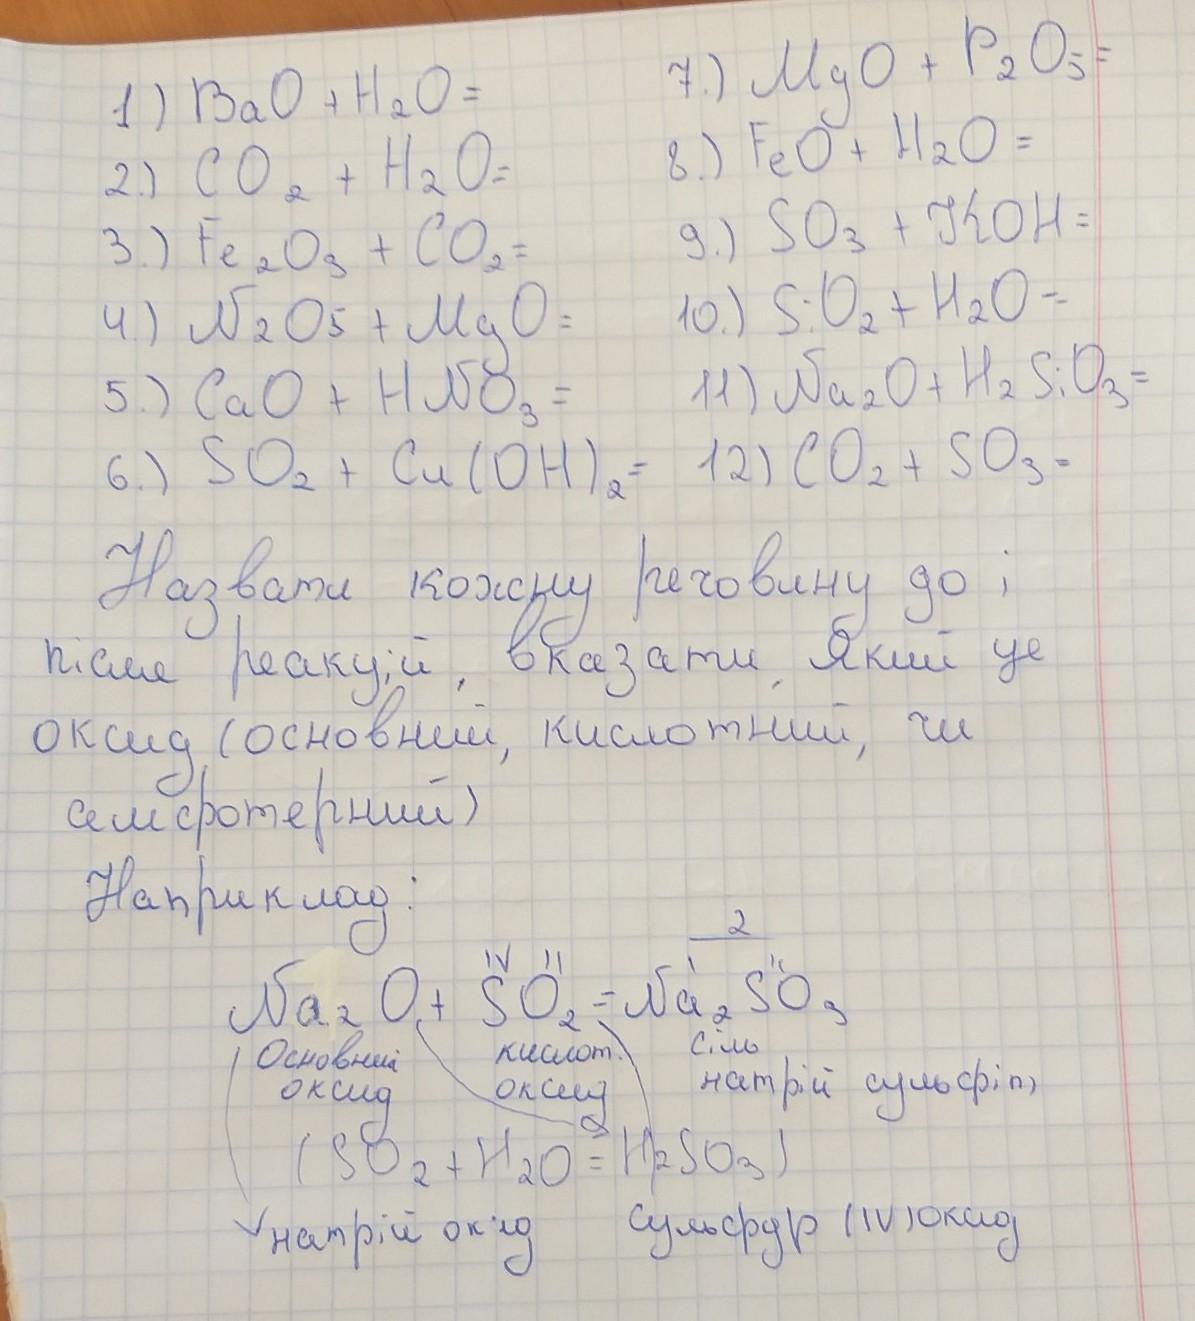 1) BaO + H₂O =
2.) CO₂ + H₂O =
3.) Fe₂O₃ + CO₂ =
4.) N₂O₅ + MgO =
5.) CaO + HNO₃ =
6.) SO₂ + Cu(OH)₂ =
7.) MgO + P₂O₅ =
8.) FeO + H₂O =
9.) SO₃ + KOH =
10.) SiO₂ + H₂O =
11) Na₂O + H₂SiO₃ =
12) CO₂ + SO₃ =
Назвати кожну речовину до і
після реакції, вказати, який це
оксид (основний, кислотний, чи
амфотерний)
Наприклад:
2
IV II I II
Na₂O + SO₂ = Na₂SO₃
Основний кислот. сіль
оксид оксид натрій сульфіт,
(SO₂ + H₂O = H₂SO₃)
натрій окид сульфур (IV) оксид